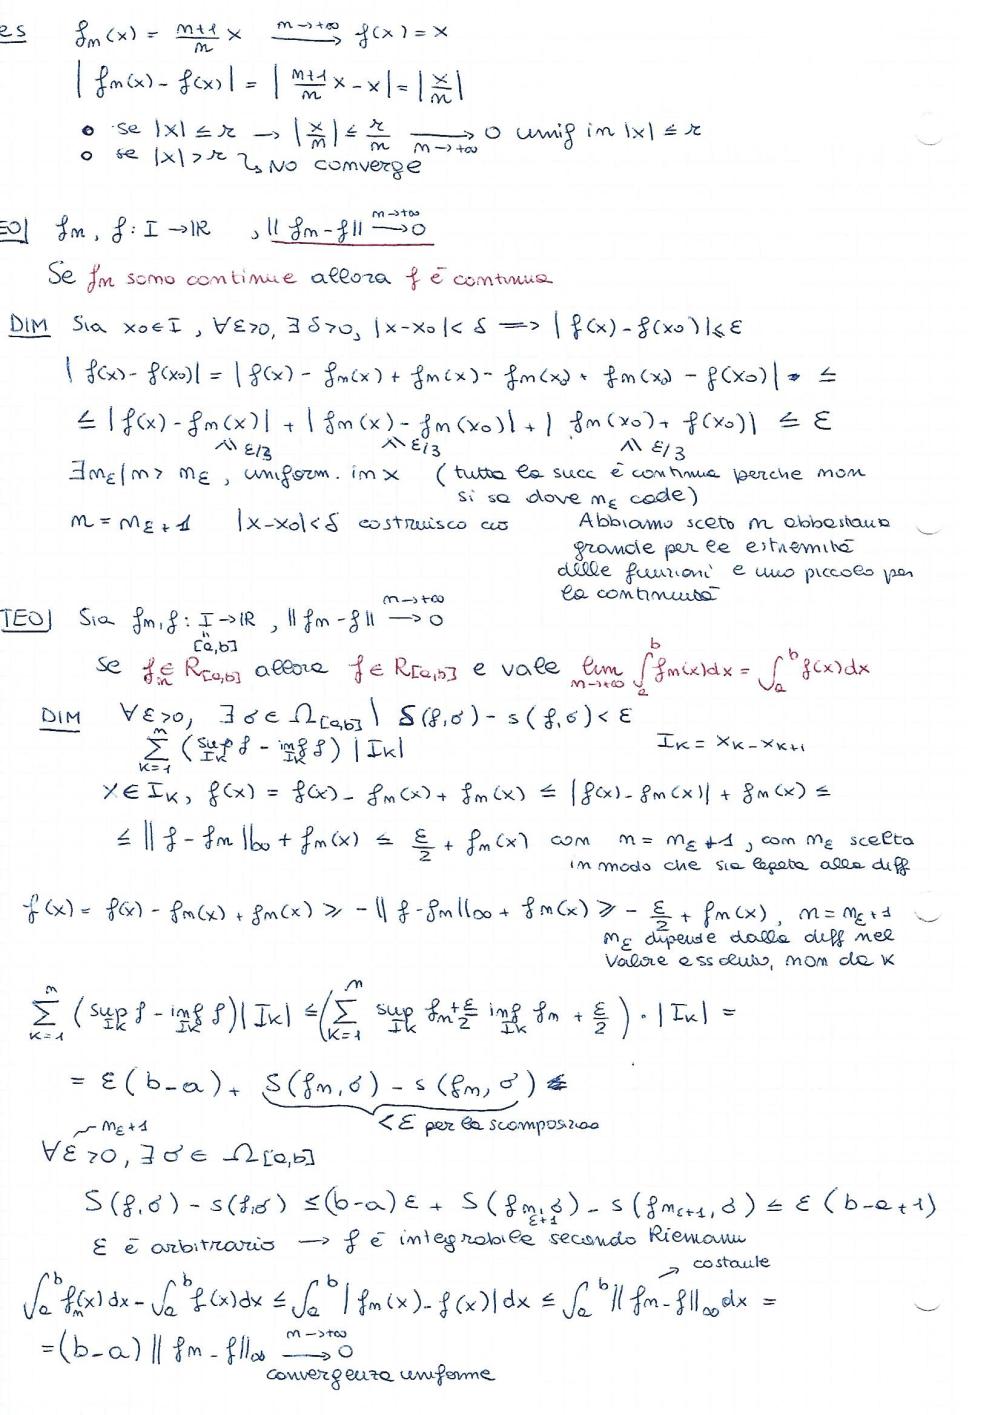 es fn(x) = n+1/n x n→+∞ ⟶ f(x) = x
|fn(x) - f(x)| = |n+1/n x - x| = |x/n|
• se |x| ≤ r → |x/n| ≤ r/n ⟶ n→+∞ 0 unif in |x| ≤ r
• se |x| > r ↳ NO converge
EO| fn, f: I → IR , || fn - f || n→+∞ ⟶ 0
Se fn sono continue allora f é continua
DIM Sia x0 ∈ I , ∀ε>0, ∃ δ>0, |x-x0| < δ => | f(x) - f(x0) | ≤ ε
| f(x) - f(x0)| = | f(x) - fn(x) + fn(x) - fn(x0) + fn(x0) - f(x0) | ≤
≤ | f(x) - fn(x) | + | fn(x) - fn(x0) | + | fn(x0) + f(x0) | ≤ ε
≤ ε/3 ≤ ε/3 ≤ ε/3
∃ nε | n > nε , uniform. in x ( tutta la succ é continua perche non
si sa dove nε cade )
n = nε + 1 |x-x0| < δ costruisco cos
Abbiamo sceto n abbastanza
grande per le estremitá
delle funzioni e uno piccolo per
la continuitá
TEO| Sia fn, f: I → IR , || fn - f || n→+∞ ⟶ 0
[a,b]
se fn ∈ R[a,b] allora f ∈ R[a,b] e vale lim n→+∞ ∫ₐᵇ fn(x)dx = ∫ₐᵇ f(x)dx
DIM ∀ε>0, ∃ σ ∈ Ω[a,b] | S(f,σ) - s(f,σ) < ε
n Σ k=1 (sup Ik f - inf Ik f) |Ik| Ik = xk - xk+1
x ∈ Ik, f(x) = f(x) - fn(x) + fn(x) ≤ |f(x) - fn(x)| + fn(x) ≤
≤ || f - fn ||∞ + fn(x) ≤ ε/2 + fn(x) con n = nε + 1 , con nε scelta
in modo che sia legata alla diff
f(x) = f(x) - fn(x) + fn(x) ≥ - || f - fn ||∞ + fn(x) ≥ - ε/2 + fn(x) , n = nε + 1
nε dipende dalla diff nel
valore assoluto, non da k
n Σ k=1 (sup Ik f - inf Ik f) | Ik | ≤ ( n Σ k=1 sup Ik fn + ε/2 inf Ik fn + ε/2 ) · | Ik | =
= ε (b-a) + S(fn, σ) - s(fn, σ) ≤
< ε per la scomposizao
nε+1
∀ε >0, ∃ σ ∈ Ω[a,b]
S(f,σ) - s(f,σ) ≤ (b-a) ε + S(fnε+1, σ) - s(fnε+1, σ) ≤ ε (b-a+1)
ε é arbitrario → f é integrabile secondo Riemann
costante
∫ₐᵇ fn(x)dx - ∫ₐᵇ f(x)dx ≤ ∫ₐᵇ | fn(x) - f(x) | dx ≤ ∫ₐᵇ || fn - f ||∞ dx =
= (b-a) || fn - f ||∞ n→+∞ ⟶ 0
convergenza uniforme